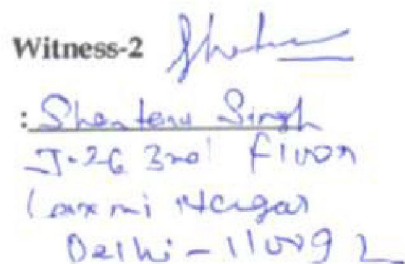 Witness-2
: Shantanu Singh
J-26 3rd Floor
Laxmi Nagar
Delhi - 110092